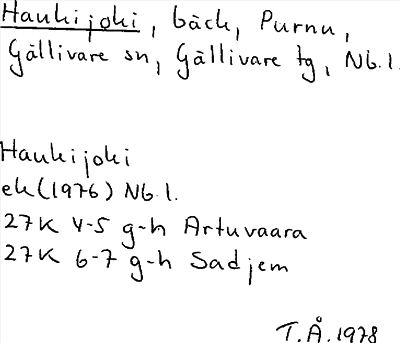 Haukijoki, bäck, Purnu,
Gällivare sn, Gällivare tg, Nb.l.
Haukijoki
ek(1976) Nb.l.
27K 4-5 g-h Artuvaara
27K 6-7 g-h Sadjem
T.Å.1978